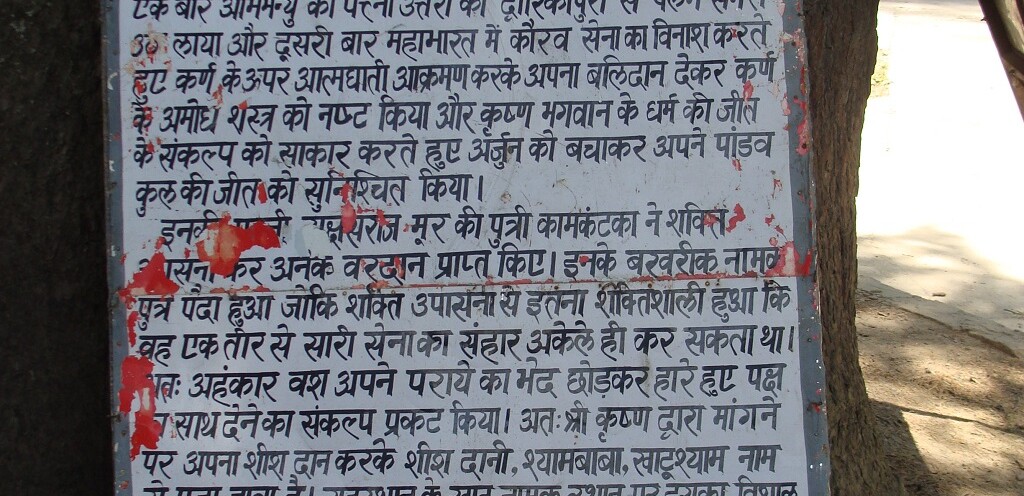 एक बार अभिमन्यु की पत्नी उत्तरा को द्वारिकापुरी से
लाया और दूसरी बार महाभारत में कौरव सेना का विनाश करते
हुए कर्ण के ऊपर आत्मघाती आक्रमण करके अपना बलिदान देकर कर्ण
के अमोघ शस्त्र को नष्ट किया और कृष्ण भगवान के धर्म की जीत
के संकल्प को साकार करते हुए अर्जुन को बचाकर अपने पांडव
कुल की जीत को सुनिश्चित किया।
मूर की पुत्री कामकंटका ने शक्ति
कर अनेक वरदान प्राप्त किए। इनके बरवरीक नामक
पुत्र पैदा हुआ जोकि शक्ति उपासना से इतना शक्तिशाली हुआ कि
वह एक तीर से सारी सेना का संहार अकेले ही कर सकता था।
अहंकार वश अपने पराये का भेद छोड़कर हारे हुए पक्ष
साथ देने का संकल्प प्रकट किया। अतः श्री कृष्ण द्वारा मांगने
पर अपना शीश दान करके शीश दानी, श्यामबाबा, खाटूश्याम नाम